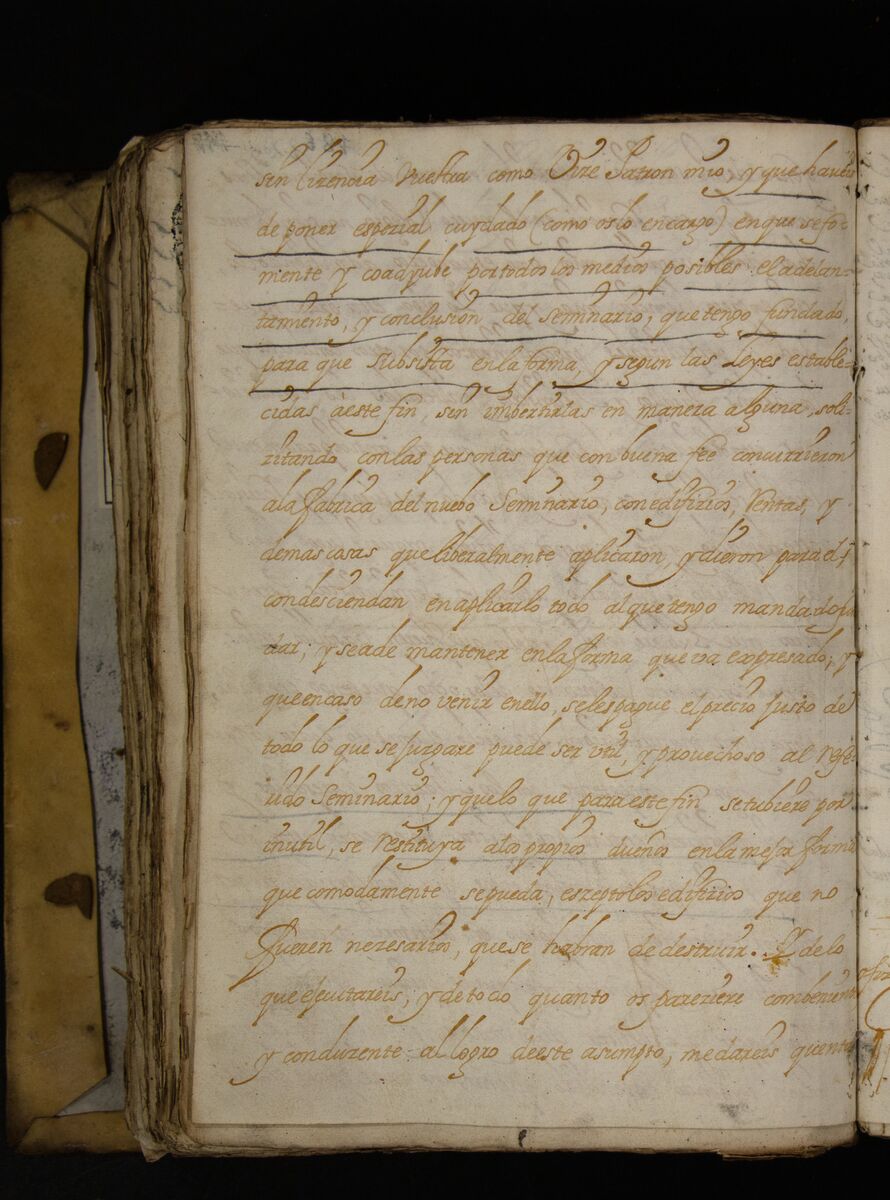 sin lizencia vuestra como Vize Patron mio, y que haveis
de poner espezial cuydado (como os lo encargo) en que se fo-
mente y coadyube por todos los medios posibles el adelan-
tamiento, y conclusion del seminario, que tengo fundado,
para que subsista en la forma, y segun las Leyes estable-
cidas à este fin, sin imbertirlas en manera alguna, soli-
zitando con las personas que con buena fee concurrieron
a la fabrica del nuebo Seminario, con edifizios, Rentas, y
demas cosas que liberalmente aplicaron, y dieron para el,
condesciendan en aplicarlo todo al que tengo mandado fun
dar; y se a de mantener en la forma que va expresado; y
que en caso de no venir en ello, se les pague el precio justo de
todo lo que se juzgare puede ser util, y provechoso al Refe-
rido Seminario; y que lo que para este fin se tubiere por
inutil, se restituya a los propios dueños en la mejor forma
que comodamente se pueda, eszepto los edifizios que no
fueren nezesarios, que se habran de destruir. Y de lo
que ejecutareis, y de todo quanto os pareziere combeniente
y conduzente al logro de este asumpto, me dareis quenta